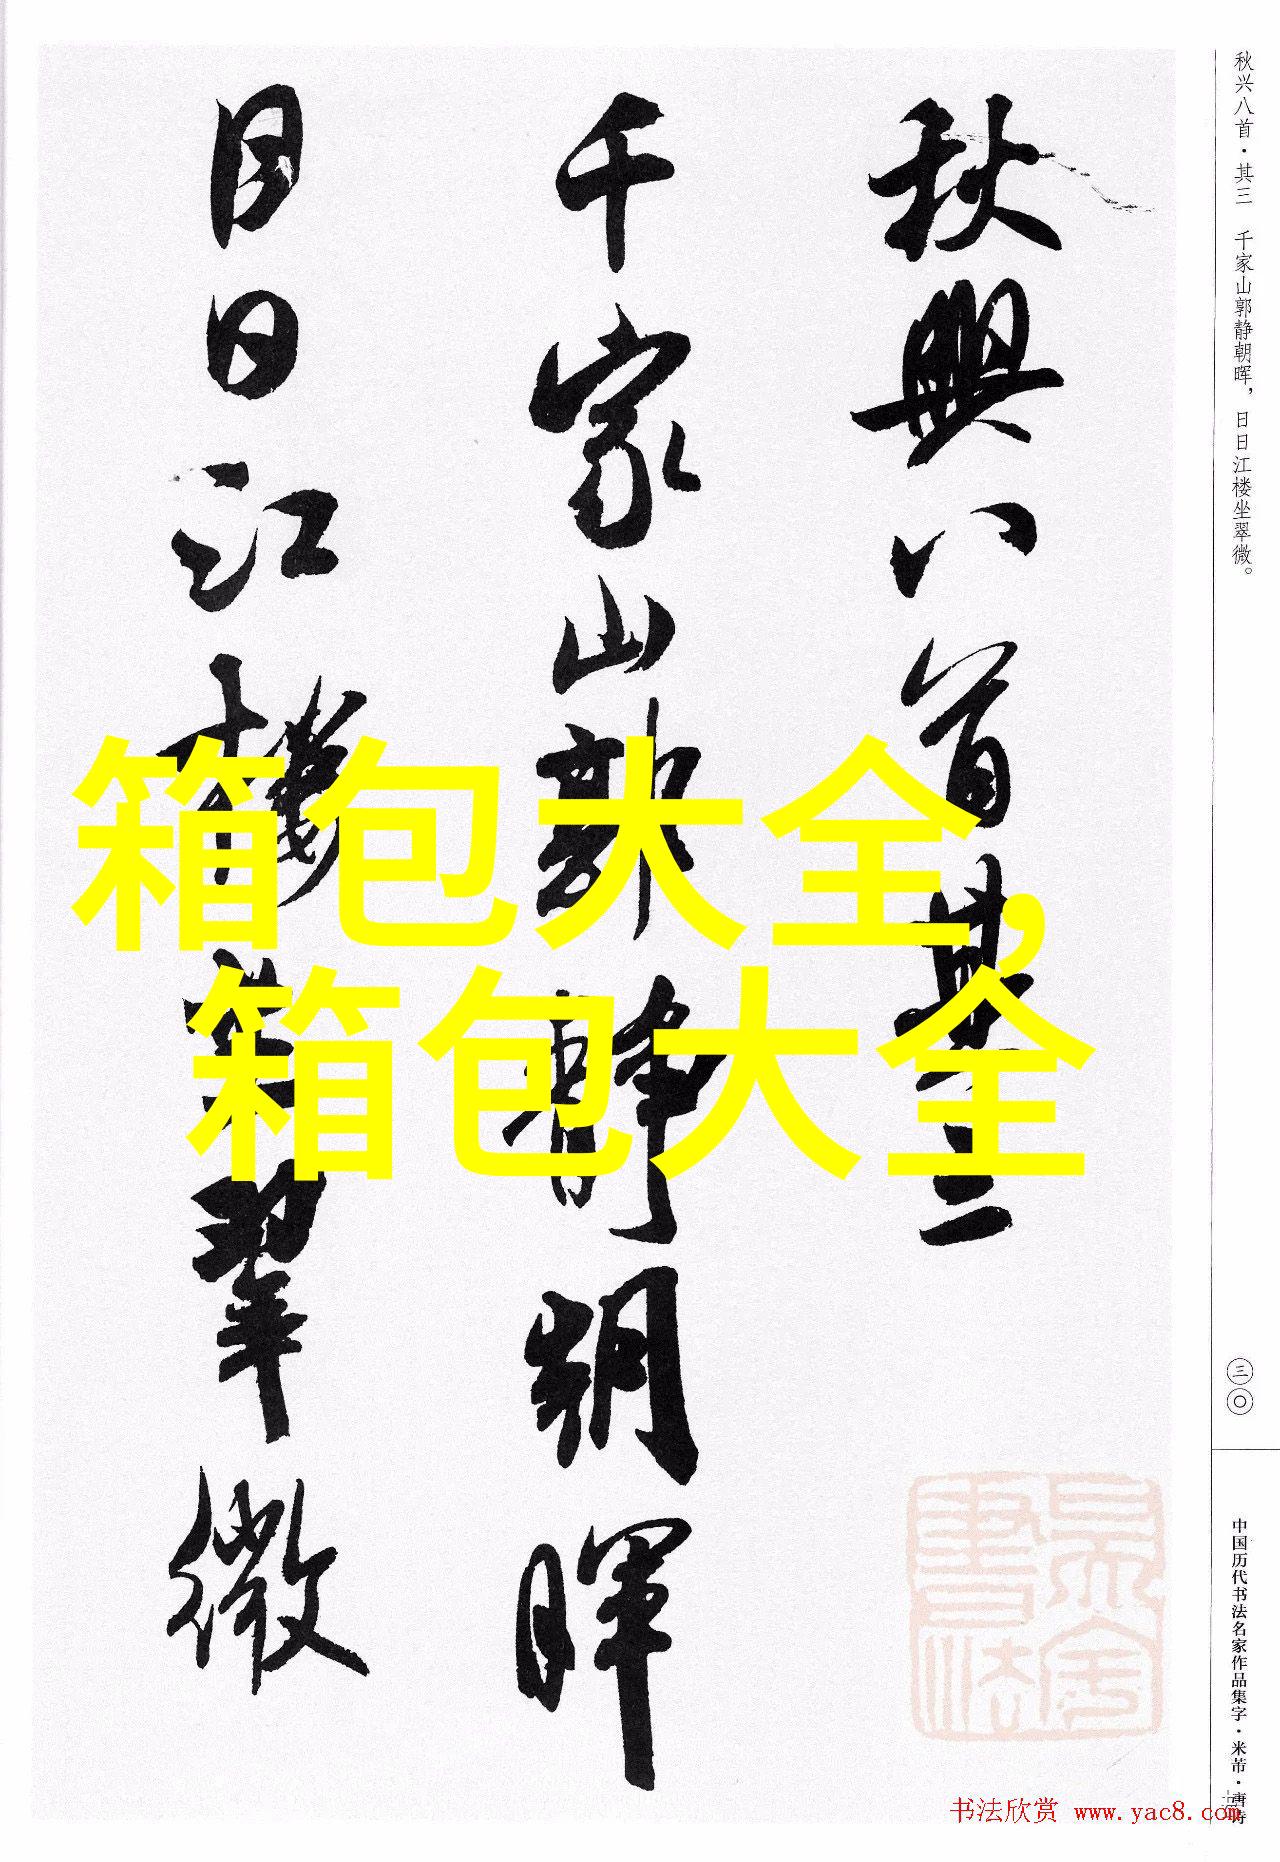 秋兴八首·其三 千家山郭静朝晖，日日江楼坐翠微。
秋興八首其三
千家山郭靜朝暉
日日江樓坐翠微
箱包大全,
箱包大全
三〇
中国历代书法名家作品集字·米芾·唐诗
书法欣赏 www.yac8.com